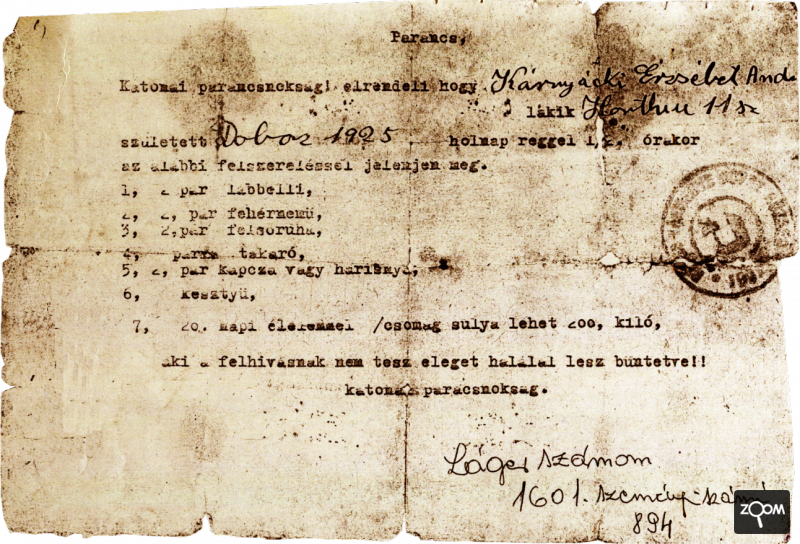 Parancs,
Katonai parancsnoksági elrendeli hogy Kárnyácki Erzsébet And.
lakik Honthu 11 sz
született Doboz 1925. holnap reggel órakor
az alábbi felszereléssel jelenjen meg.
1, 2 pár lábbelli,
2, 2, pár fehérnemü,
3, 2,pár felsőruha,
4, párna takaró,
5, 2, pár kapcza vagy harisnya,
6, kesztyü,
7, 20. napi élelemmel /csomag sulya lehet 200, kiló,
aki a felhivásnak nem tesz eleget halálal lesz büntetve!!
katonai parácsnokság.
Láger számom
1601. személyi-szám
894
ZOOM